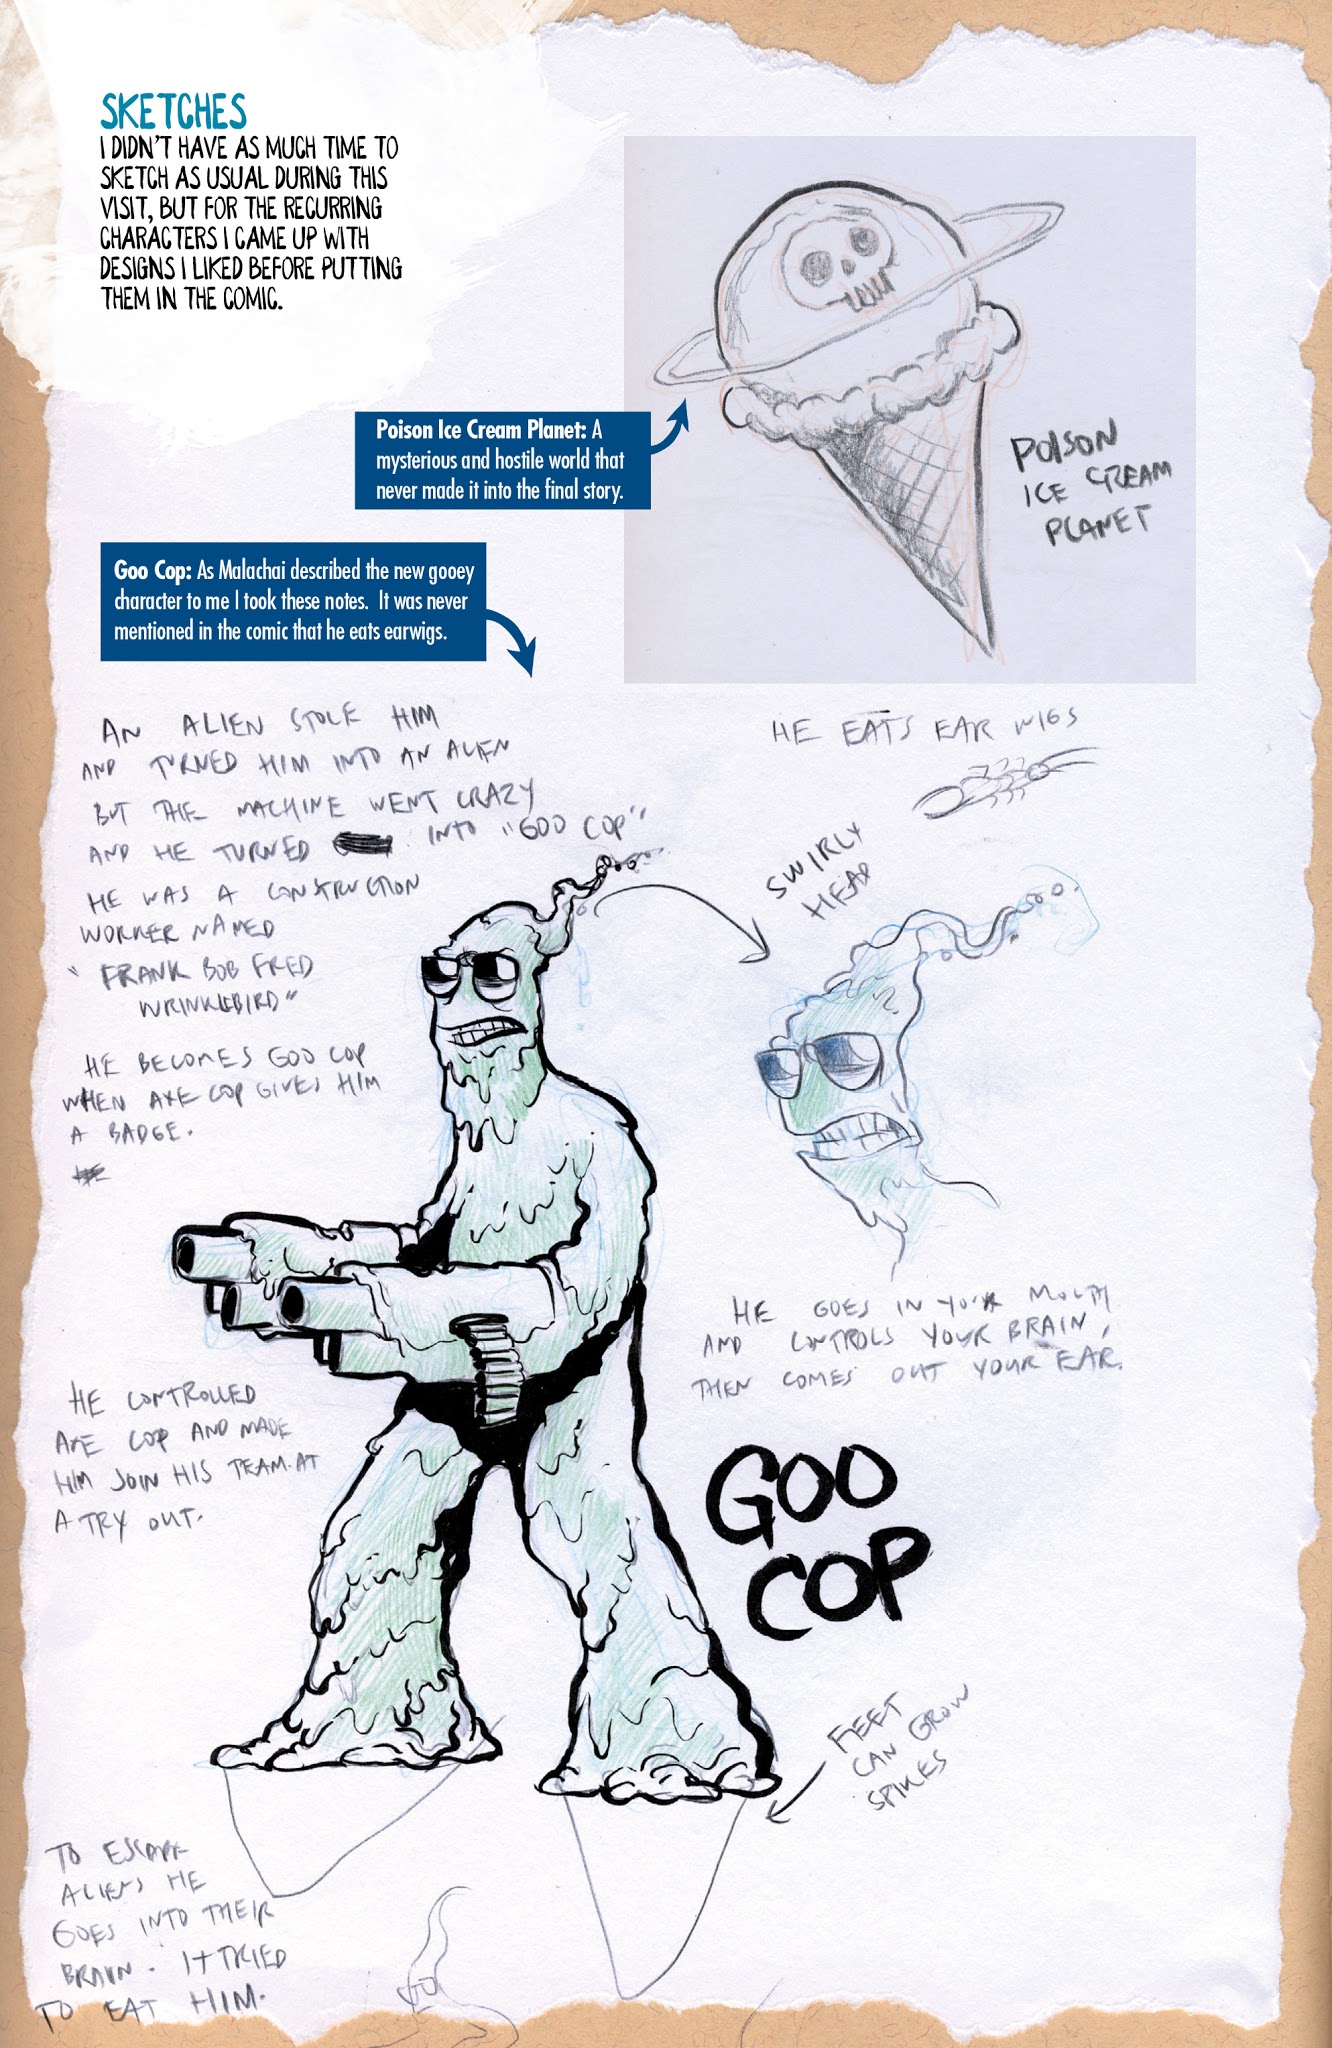 SKETCHES
I DIDN'T HAVE AS MUCH TIME TO
SKETCH AS USUAL DURING THIS
VISIT, BUT FOR THE RECURRING
CHARACTERS I CAME UP WITH
DESIGNS I LIKED BEFORE PUTTING
THEM IN THE COMIC.
Poison Ice Cream Planet: A
mysterious and hostile world that
never made it into the final story.
POISON
ICE CREAM
PLANET
Goo Cop: As Malachai described the new gooey
character to me I took these notes. It was never
mentioned in the comic that he eats earwigs.
AN ALIEN STOLE HIM
AND TURNED HIM INTO AN ALIEN
BUT THE MACHINE WENT CRAZY
AND HE TURNED INTO "GOO COP"
HE WAS A CONSTRUCTION
WORKER NAMED
"FRANK BOB FRED
WRINKLEBIRD"
HE BECOMES GOO COP
WHEN AXE COP GIVES HIM
A BADGE.
HE EATS EAR WIGS
SWIRLY
HEAD
HE GOES IN YOUR MOUTH
AND CONTROLS YOUR BRAIN,
THEN COMES OUT YOUR EAR.
HE CONTROLLED
AXE COP AND MADE
HIM JOIN HIS TEAM AT
A TRY OUT.
GOO
COP
FEET
CAN GROW
SPIKES
TO ESCAPE
ALIENS HE
GOES INTO THEIR
BRAIN. IT TRIED
TO EAT HIM.